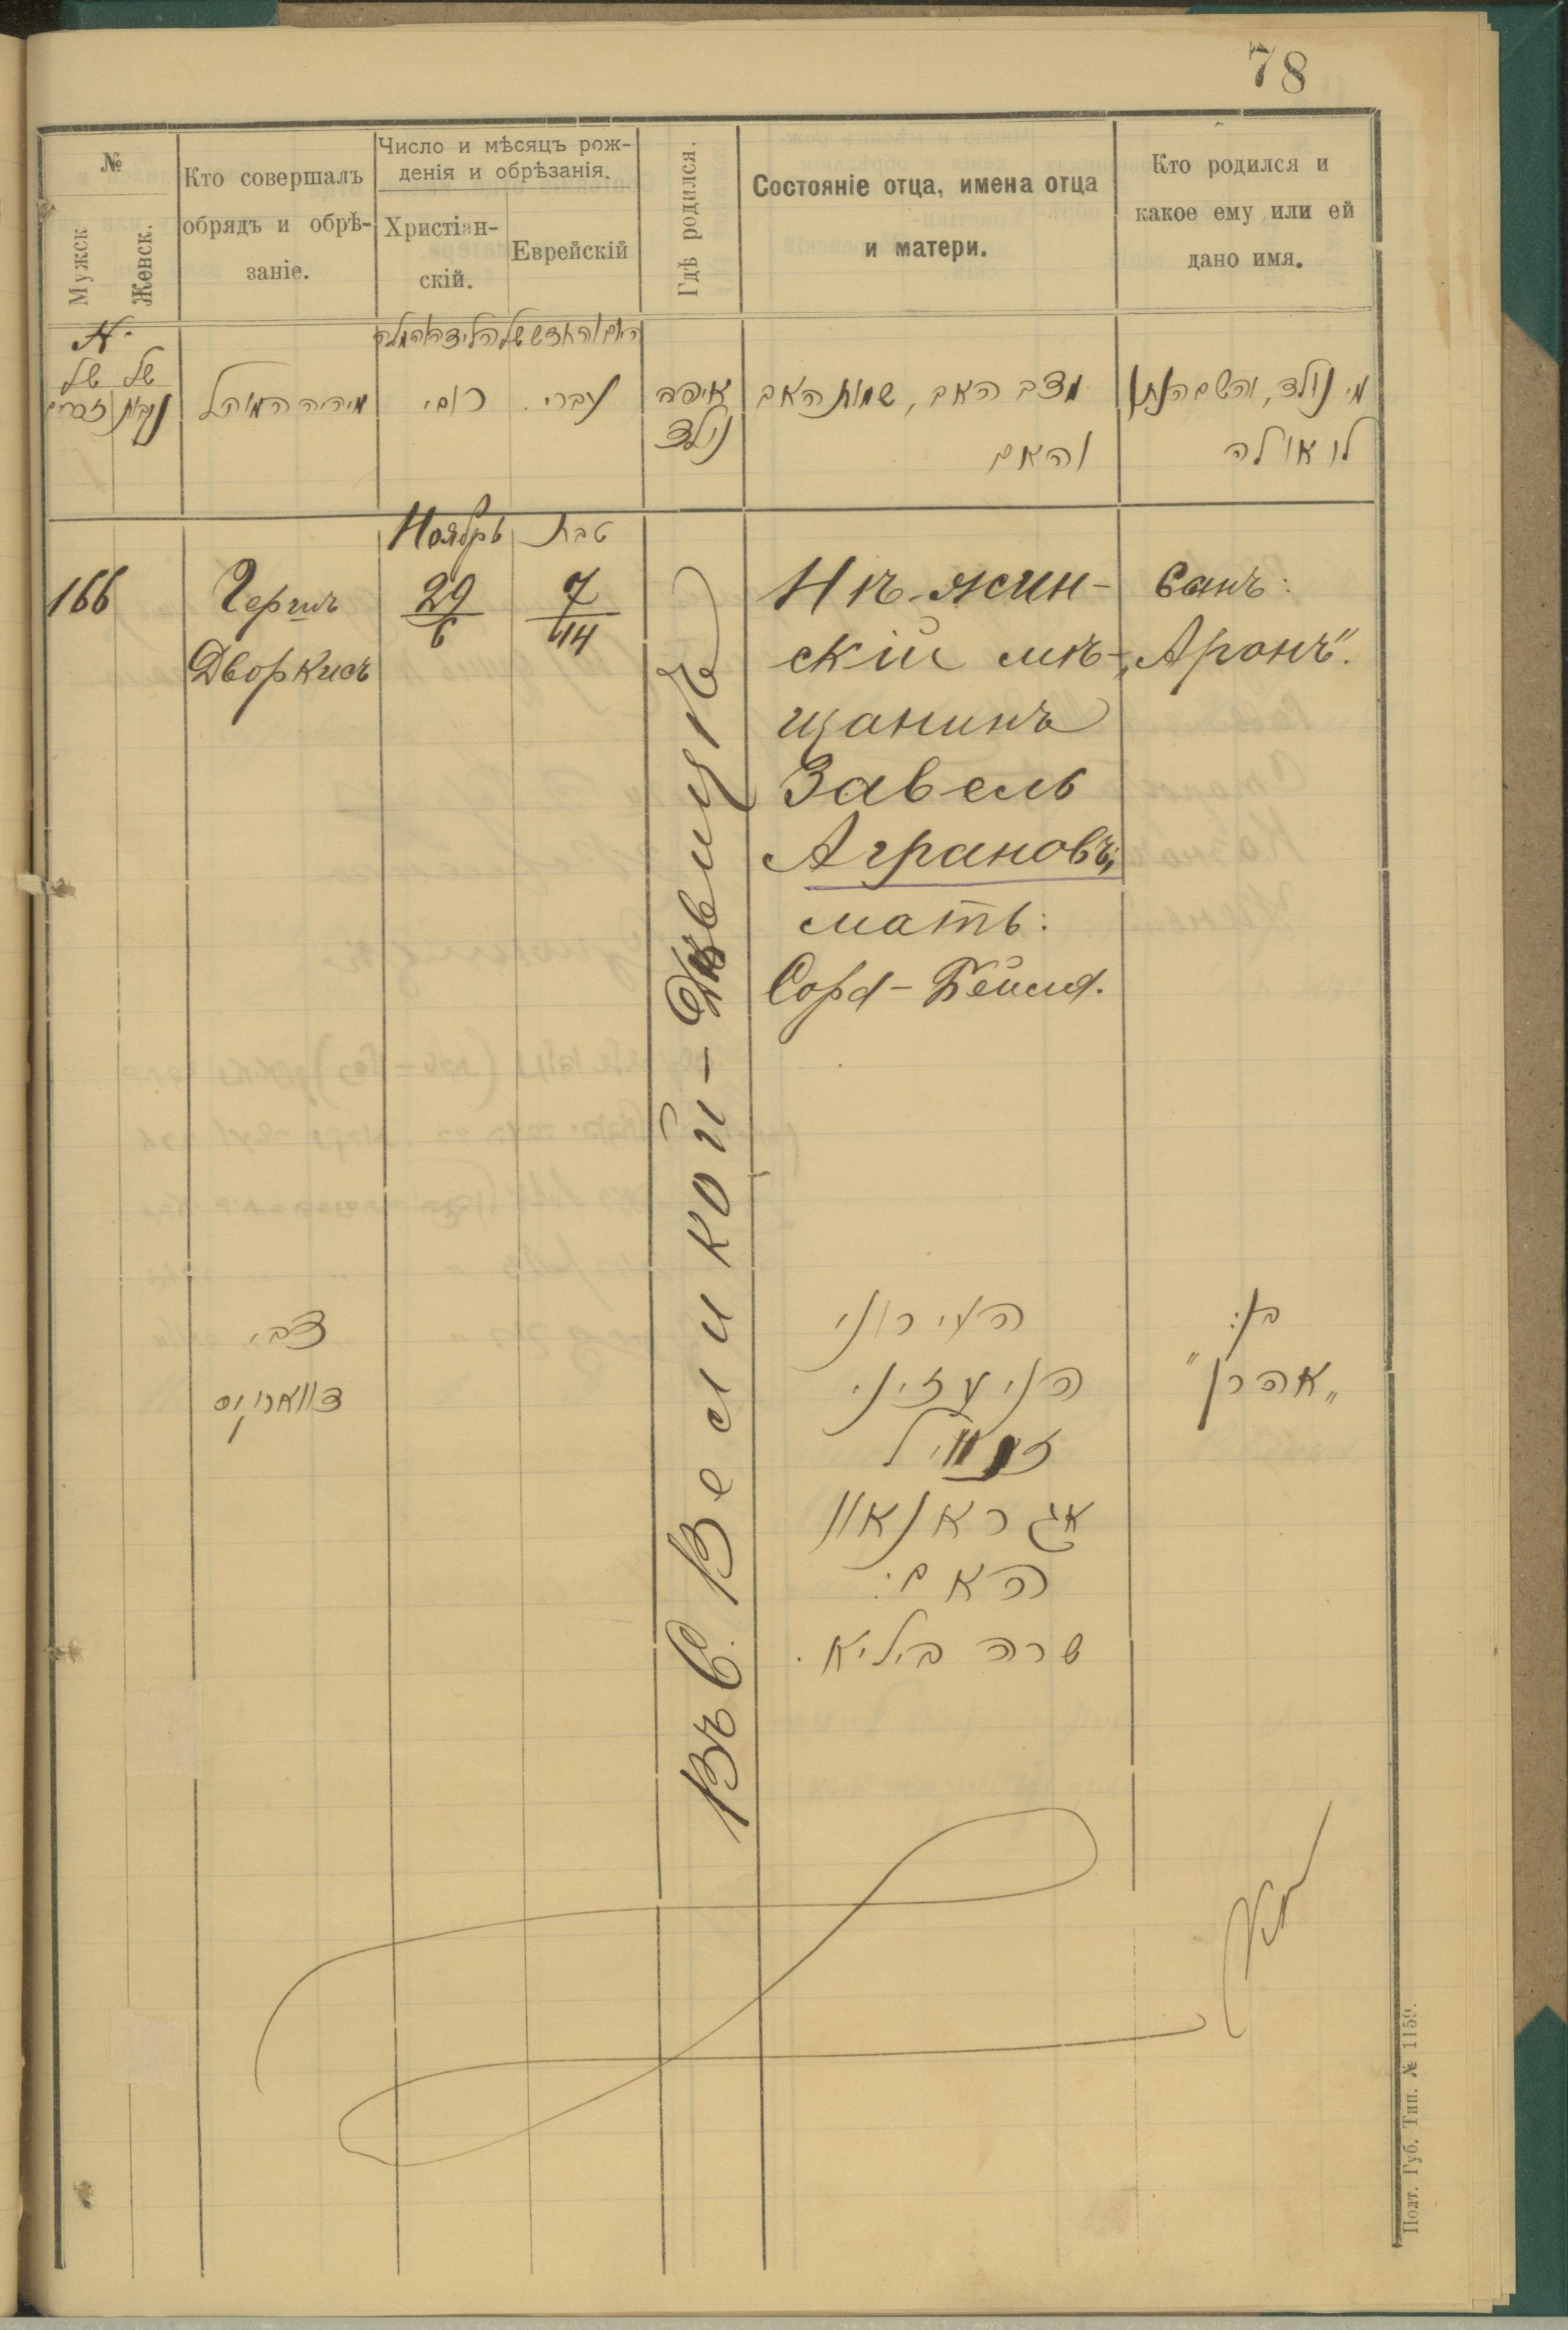 78
№
Мужск
Женск.
Кто совершалъ
обрядъ и обрѣ-
заніе.
Число и мѣсяцъ рож-
денія и обрѣзанія.
Христіан-
скій.
Еврейскій
Гдѣ родился.
Состояніе отца, имена отца
и матери.
Кто родился и
какое ему или ей
дано имя.
№
של של
נקבות זכרים
מי היה המוהל
רומי
עברי.
איפה
נולד
מצב האב, שמות האב
והאם
מי נולד, והשם הנתן
לו או לה
Ноябрь
טבת
166
Дворкисъ
29
6
7
14
Въ С. Великой-
Нѣжин-
скій мѣ-
щанинъ
Завель
Аграновъ;
мать:
Сора-Бейля.
Сынъ:
„Аронъ".
צבי
דווארקיס
העירוני
הניעזיני
אגראנאוו
האם:
שרה ביילא.
בן:
„אהרן"
Полт. Губ. Тип. № 1159.